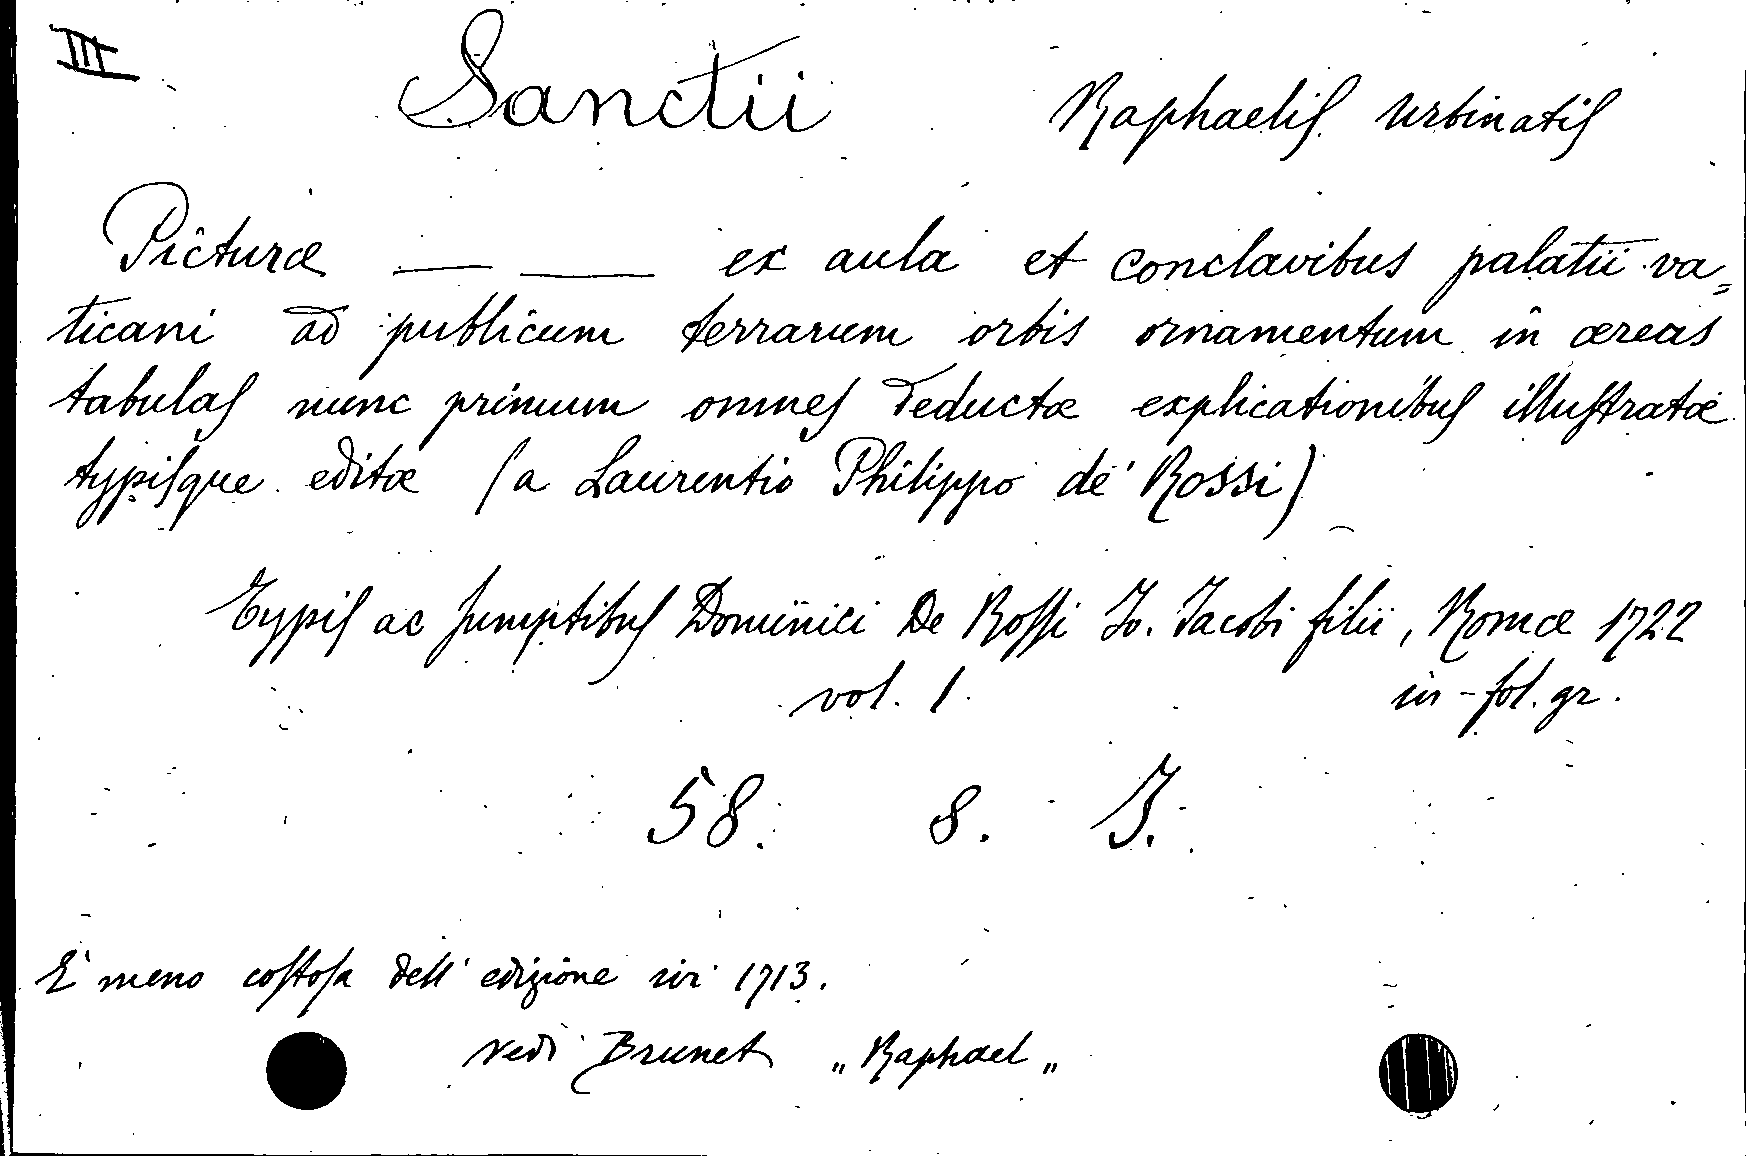 III
Sanctii Raphaelis Urbinatis
Picturæ — — ex aula et conclavibus palatii va=
ticani ad publicum terrarum orbis ornamentum in æreas
tabulas nunc primum omnes deductæ explicationibus illustratæ
typisque editæ (a Laurentio Philippo de' Rossi)
Typis ac sumptibus Dominici De Rossi Jo. Jacobi filii, Romæ 1722
vol. 1. in-fol. gr.
58. 8. I.
È meno costosa dell' edizione 1713.
vedi Brunet „Raphael„